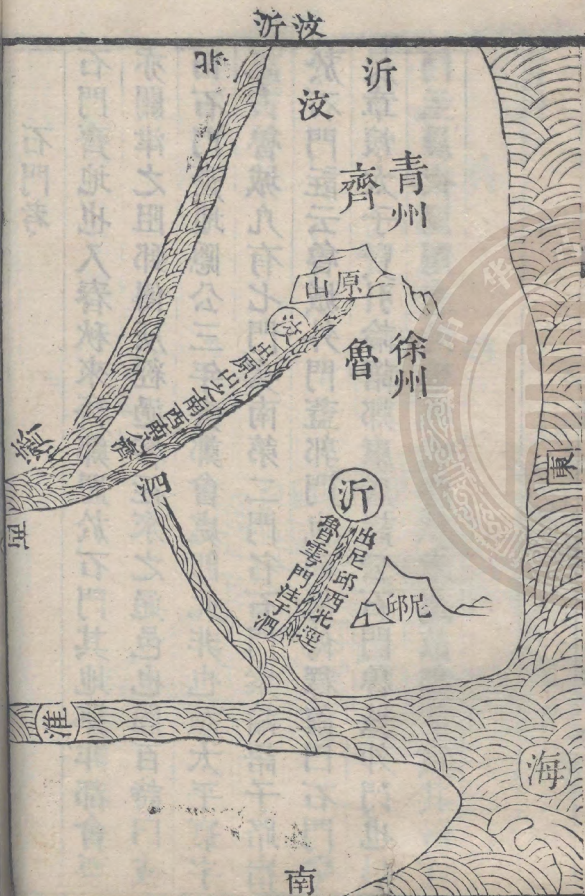 沂汶
北
沂
汶
青州
齊
原山
汶
出原山之南西南入濟
徐州
魯
濟
西
泗
沂
出尼邱西北逕
魯雩門注于泗
尼邱
東
淮
海
南